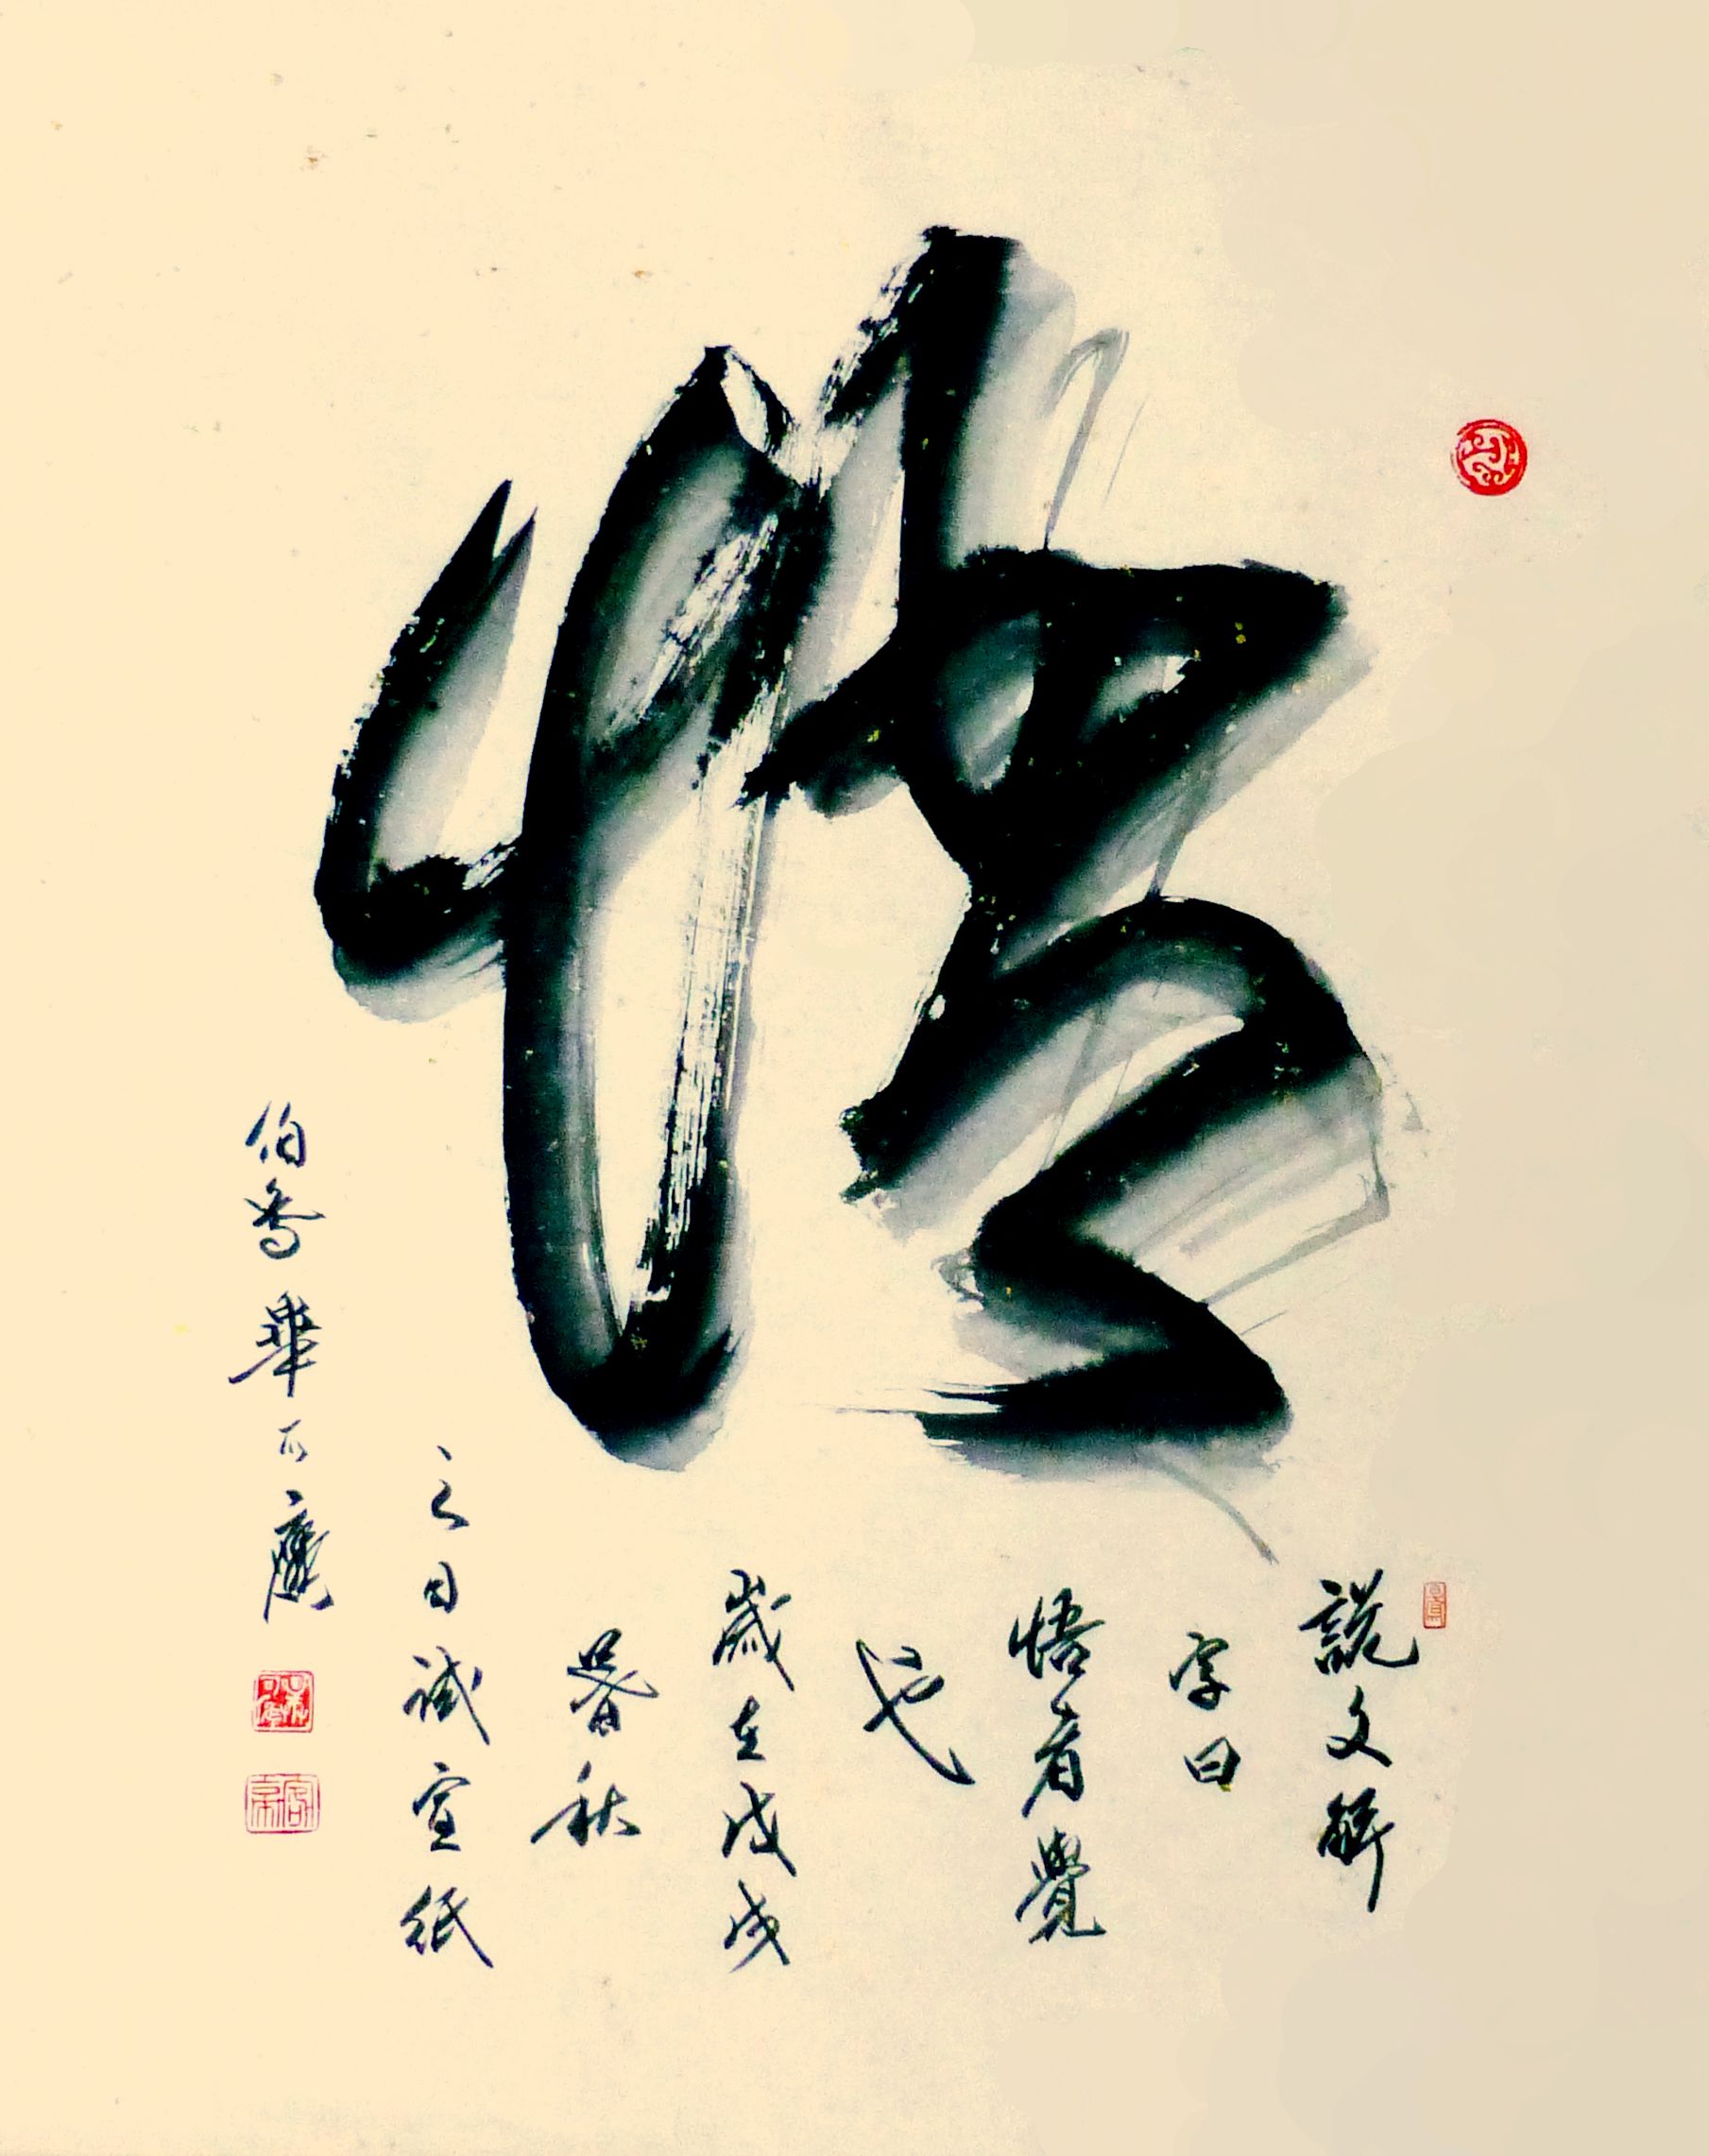 悟
說文解
字曰
悟者覺
也
歲在戊戌
暮秋
之日試宣紙
伯